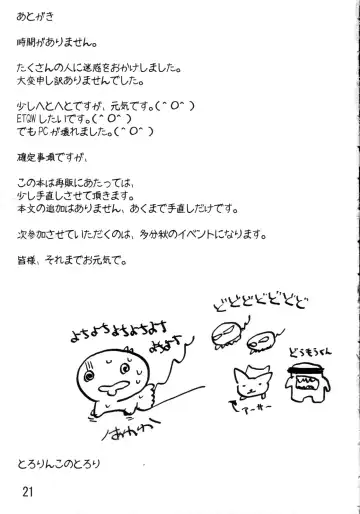 あとがき
時間がありません。
たくさんの人に迷惑をおかけしました。
大変申し訳ありませんでした。
少しへとへとですが、元気です。(＾O＾)
ETQWしたいです。(＾O＾)
でもPCが壊れました。(＾O＾)
確定事項ですが、
この本は再販にあたっては、
少し手直しさせて頂きます。
本文の追加はありません、あくまで手直しだけです。
次参加させていただくのは、多分秋のイベントになります。
皆様、それまでお元気で。
どどどどどどど
よちよちよちよちよち
よちよち
どらもちゃん
アーサー
はわわわ
とろりんこのとろり
21